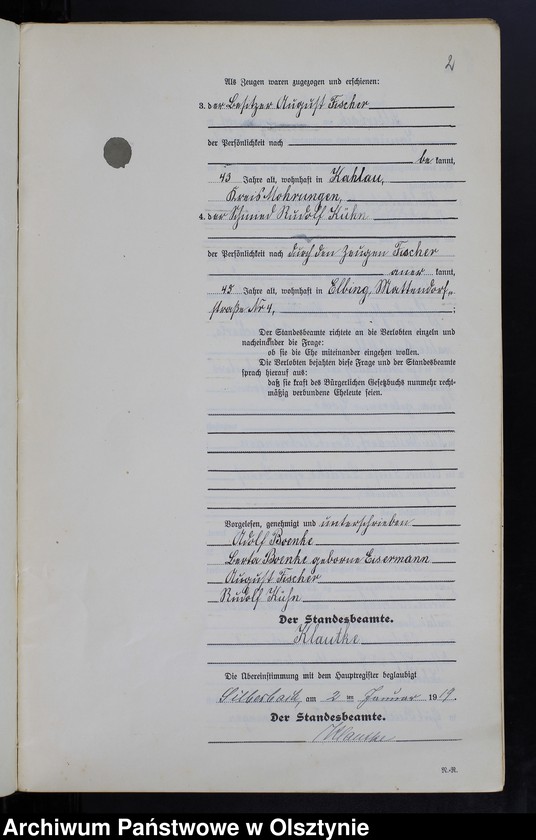 2
Als Zeugen waren zugezogen und erschienen:
3. der Besitzer August Fischer
der Persönlichkeit nach
be kannt,
43 Jahre alt, wohnhaft in Kahlau,
Kreis Mohrungen,
4. der Schmied Rudolf Kühn
der Persönlichkeit nach durch den Zeugen Fischer
aner kannt,
42 Jahre alt, wohnhaft in Elbing, Mattendorf-
straße Nr 4, ;
Der Standesbeamte richtete an die Verlobten einzeln und
nacheinander die Frage:
ob sie die Ehe miteinander eingehen wollen.
Die Verlobten bejahten diese Frage und der Standesbeamte
sprach hierauf aus:
daß sie kraft des Bürgerlichen Gesetzbuchs nunmehr recht-
mäßig verbundene Eheleute seien.
Vorgelesen, genehmigt und unterschrieben
Adolf Boenke
Berta Boenke geborne Eisermann
August Fischer
Rudolf Kühn
Der Standesbeamte.
Klautke
Die Übereinstimmung mit dem Hauptregister beglaubigt
Silberbach, am 2 ten Januar 1919.
Der Standesbeamte.
Klautke
N.-R.
Archiwum Państwowe w Olsztynie